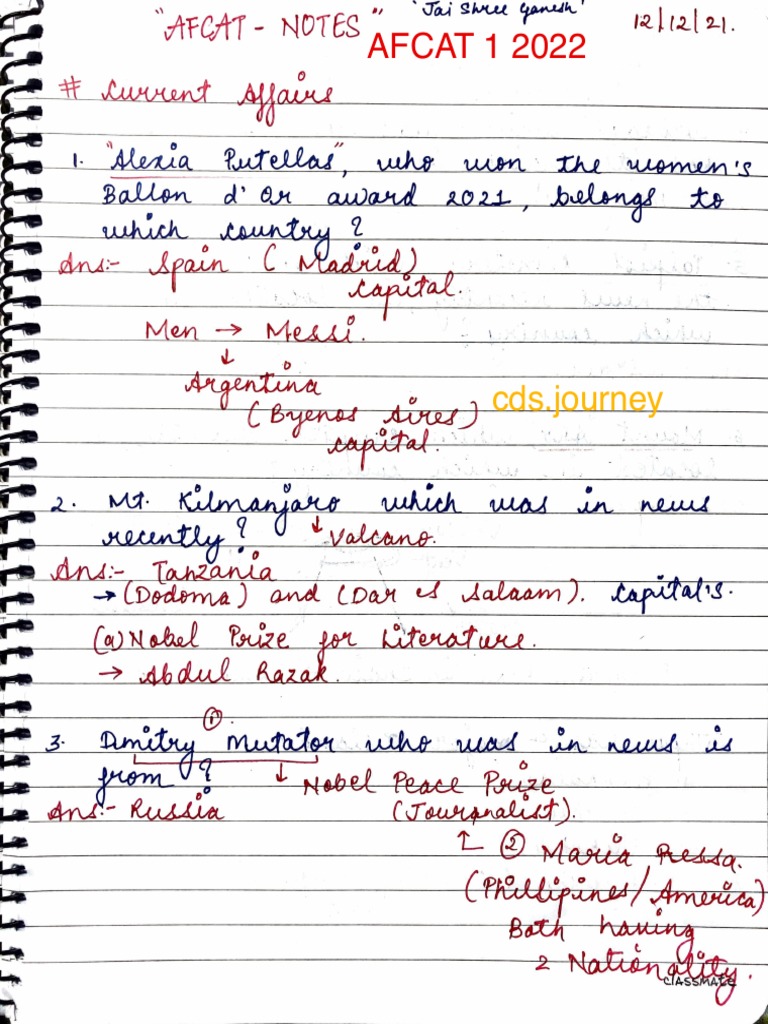 "AFCAT - NOTES" 'Jai Shree Ganesh' 12/12/21.
AFCAT 1 2022
# Current Affairs
1. "Alexia Putellas", who won the women's
Ballon d'Or award 2021, belongs to
which country?
Ans:- Spain (Madrid)
capital.
Men → Messi.
↓
Argentina
cds.journey
(Byenos Aires)
capital.
2. Mt. Kilmanjaro which was in news
recently? ↓ Valcano.
Ans:- Tanzania
→ (Dodoma) and (Dar es Salaam). Capital's.
(a) Nobel Prize for Literature.
→ Abdul Razak.
①.
3. Dmitry Mutator who was in news is
from? ↓ Nobel Peace Prize
Ans:- Russia (Journalist).
↑ ② Maria Ressa.
(Phillipines/America)
Both having
2 Nationality.
CLASSMATE